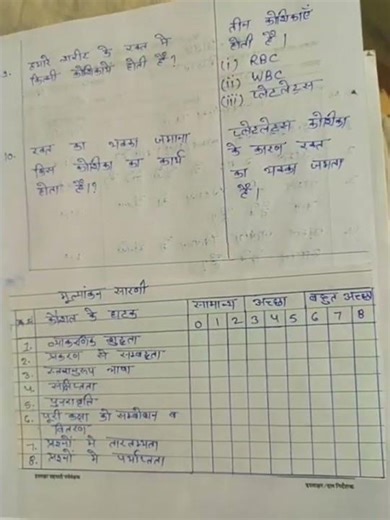 9. हमारे शरीर के रक्त में
कितनी कोशिकायें होती हैं?
तीन कोशिकाएँ
होती हैं।
(i) RBC
(ii) WBC
(iii) प्लेटलेट्स
10. रक्त का थक्का जमाना
किस कोशिका का कार्य
होता है।?
प्लेटलेट्स कोशिका
के कारण रक्त
का थक्का जमता
है।
मूल्यांकन सारणी
क्र.सं. कौशल के घटक सामान्य अच्छा बहुत अच्छा
0 1 2 3 4 5 6 7 8
1. व्याकरणिक शुद्धता
2. प्रकरण से सम्बद्धता
3. स्तरानुरूप भाषा
4. संक्षिप्तता
5. पुनरावृत्ति
6. पूरी कक्षा को सम्बोधन व
वितरण
7. प्रश्नों में तारतम्यता
8. प्रश्नों में पर्याप्तता
हस्ताक्षर सहपाठी पर्यवेक्षक
हस्ताक्षर/दल निर्देशक